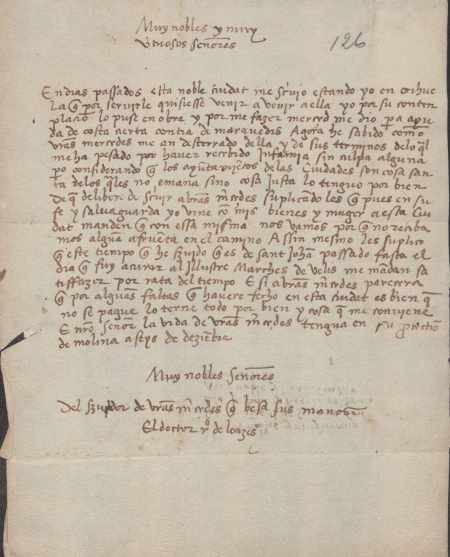 Muy nobles y muy
vtuosos señores
126
En dias passados esta noble ciudat me scriuio estando yo en orihue
la q̃ por seruirle quisiesse venir a veuir a ella yo por su contem
placio lo puse en obra y por me fazer merced me dio pa ayu
da de costa cierta contia de marauedis Agora he sabido como
vras mercedes me an desterrado della y de sus terminos de lo ql
me ha pesado por hauer recebido Infamia sin culpa alguna
po considerando q̃ los ayũtamiẽtos de las Ciudades son cosa san
ta de los q̃les no emana sino cosa justa lo tenguo por bien
de q̃ deliberé de scriuir a vras mcedes suplicado les q̃ pues en su
fe y saluaguarda yo vine cõ mis bienes y muger a esta Ciu
dat manden q̃ con essa misma nos vamos por q̃ no reciba
mos algũa afrueta en el camino Assin mesmo les suplico
q̃ este tiempo q̃ he seruido q̃ es de sant Johã passado fasta el
dia q̃ fuy a curar al Illustre Marq̃es de velis me mãdan sa
tisfazer por rata del tiempo E si a vras mcedes parecera
q̃ por algunas faltas q̃ hauere fecho en esta ciudat es bien q̃
no se pague lo terne todo por bien y cosa q̃ me conuiene
E nro señor la vida de vras mcedes tengua en su protectiõ
de molina a seys de deziẽbre
Muy nobles señores
Del seruidor de vras mcedes q̃ besa sus manos
El doctor de